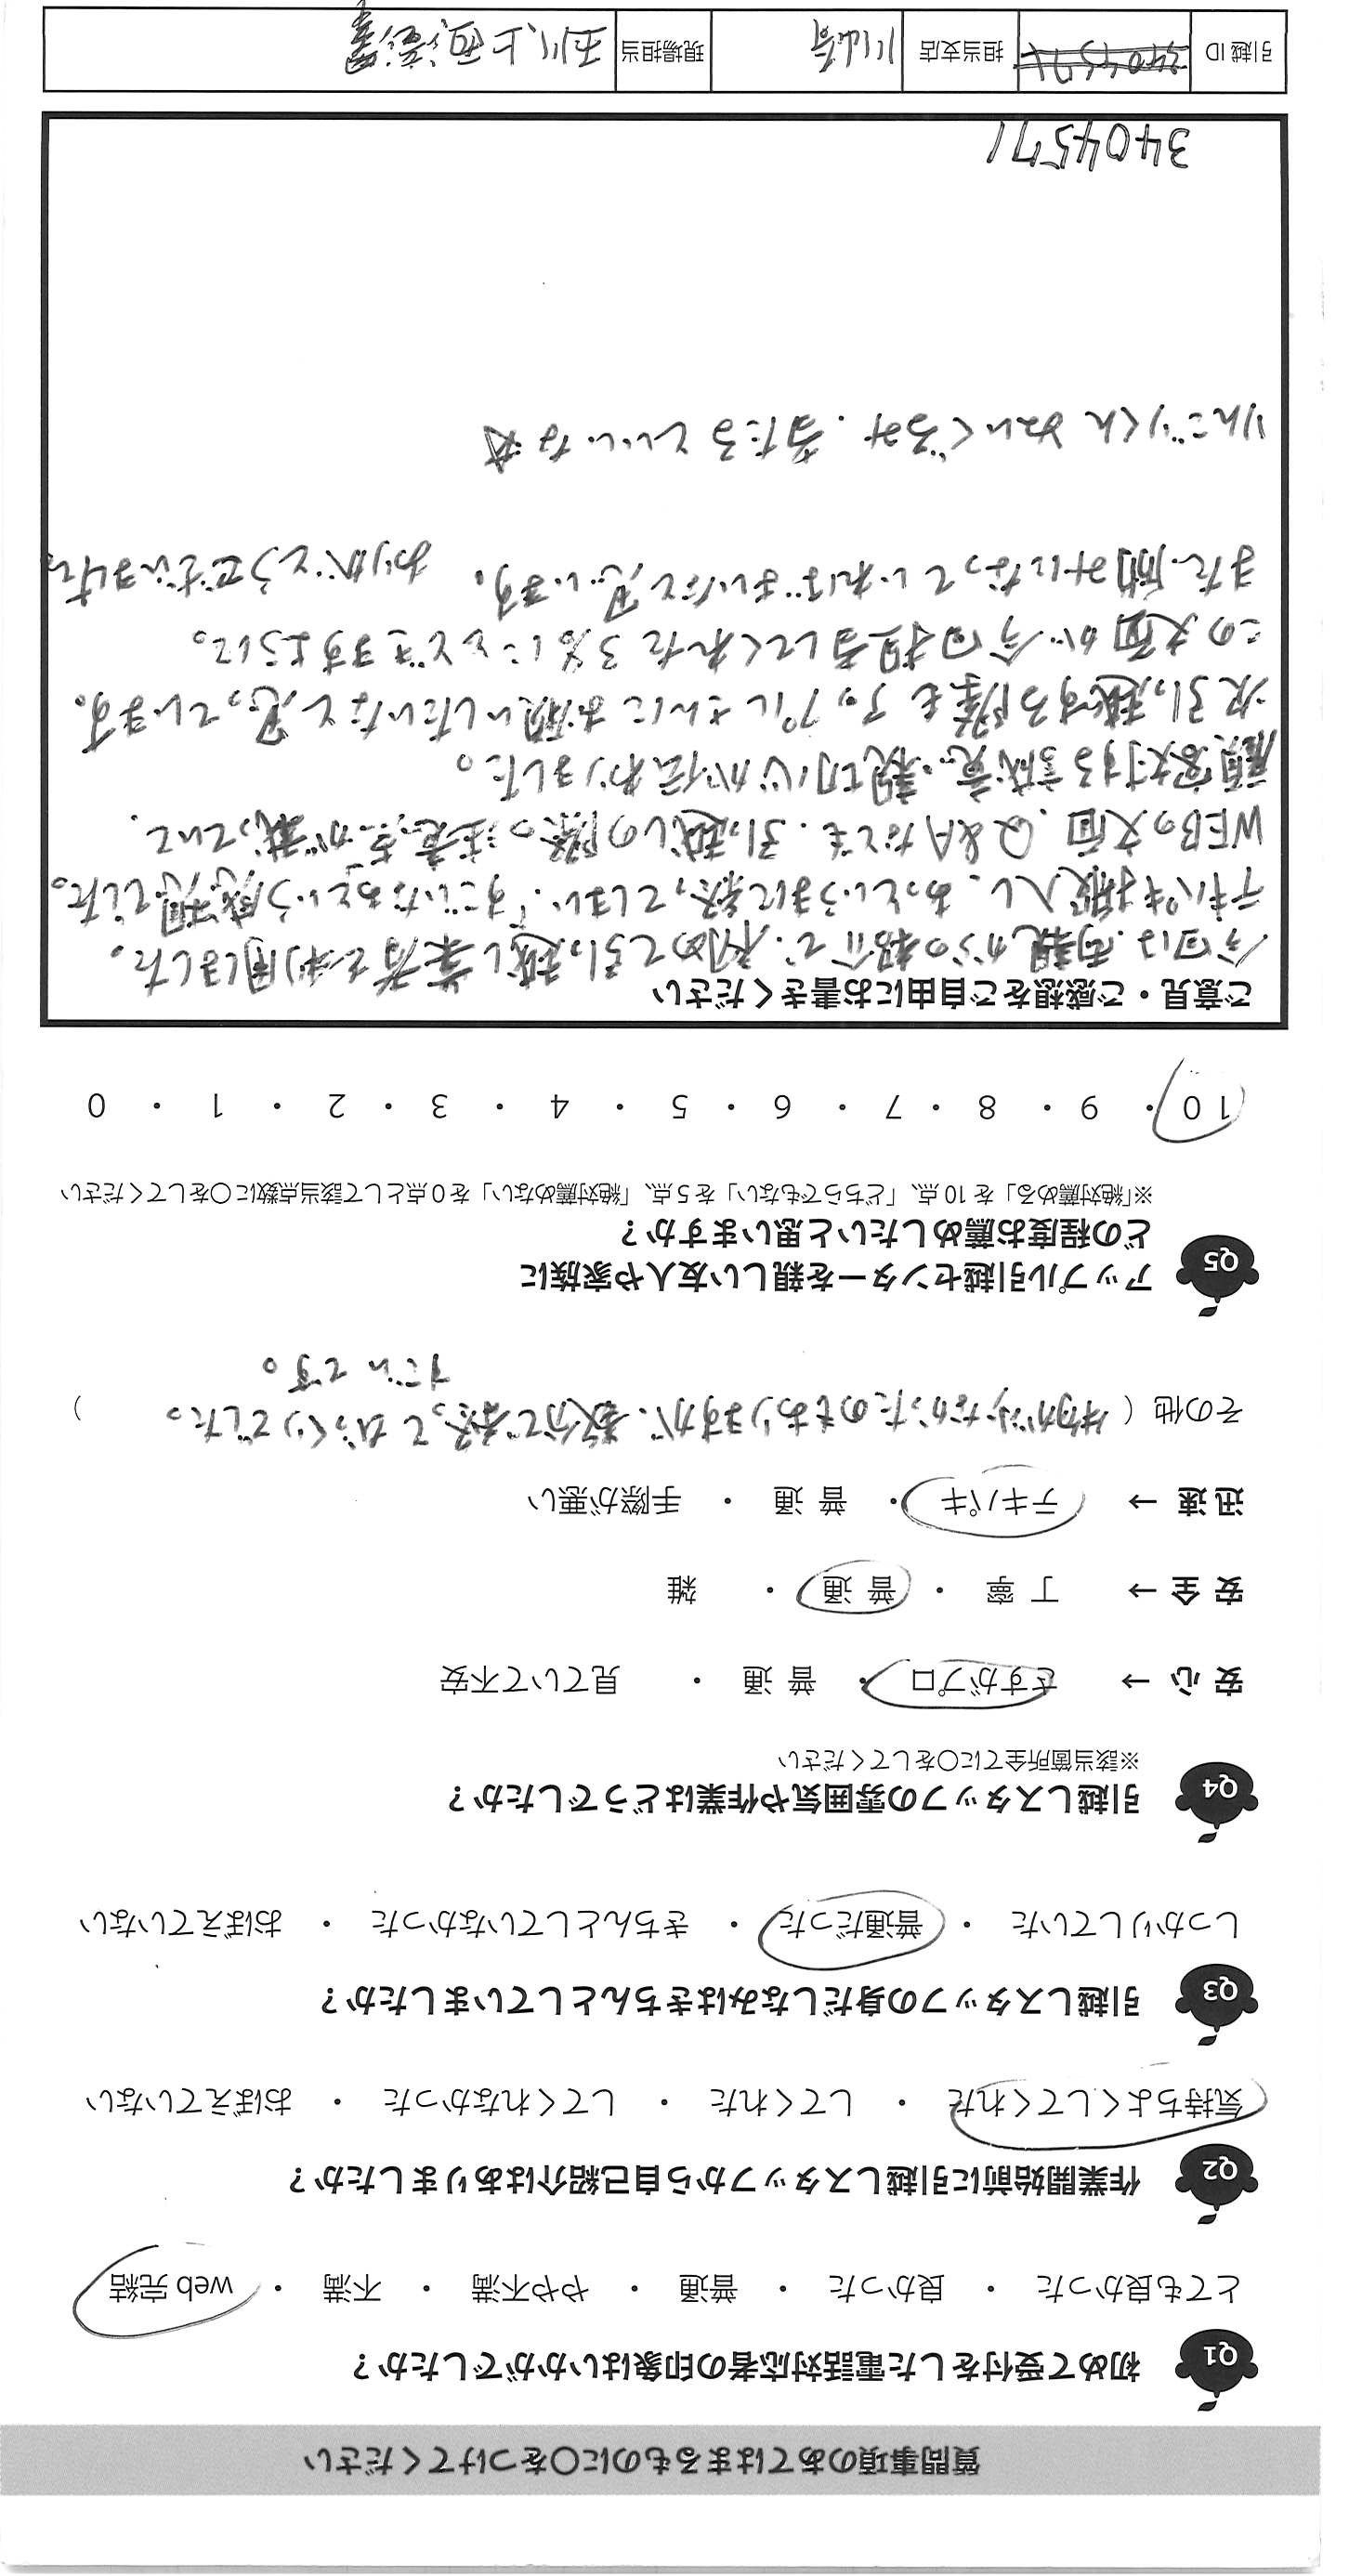 質問事項のあてはまるものに○をつけてください
Q1 初めて受付をした電話対応者の印象はいかがでしたか？
とても良かった ・ 良かった ・ 普通 ・ やや不満 ・ 不満 ・ web 完結
Q2 作業開始前に引越しスタッフから自己紹介はありましたか？
気持ちよくしてくれた ・ してくれた ・ してくれなかった ・ おぼえていない
Q3 引越しスタッフの身だしなみはきちんとしていましたか？
しっかりしていた ・ 普通だった ・ きちんとしていなかった ・ おぼえていない
Q4 引越しスタッフの雰囲気や作業はどうでしたか？
※該当箇所全てに○をしてください
安 心 → さすがプロ ・ 普 通 ・ 見ていて不安
安 全 → 丁 寧 ・ 普 通 ・ 雑
迅 速 → テキパキ ・ 普 通 ・ 手際が悪い
その他 ( 物が少なかったのもありますが、数分で終ってびっくりでした。 )
すごいです。
Q5 アップル引越センターを親しい友人や家族に
どの程度お薦めしたいと思いますか？
※「絶対薦める」を 10 点、「どちらでもない」を 5 点、「絶対薦めない」を 0 点として該当点数に○をしてください
10 ・ 9 ・ 8 ・ 7 ・ 6 ・ 5 ・ 4 ・ 3 ・ 2 ・ 1 ・ 0
ご意見・ご感想をご自由にお書きください
今回は、両親からの紹介で、初めて引っ越し業者を利用しました。
テキパキ搬入し、あっというまに終ってしまい、「すごいなぁという感想でした。
WEBの文面、Q&Aなども、引っ越しの際の注意点が載っていて、
顧客対する誠意、親切心が伝わりました。
次引っ越する際も アップルさんにお願いしたいなと思っています。
この文面が今回担当してくれた3名にとどきますように。
また、励みになっていればよいなと思います。 ありがとうございました。
りんごりくん ぬいぐるみ、当たるといいな☆
3404571
引越 ID 担当支店 川崎 現場担当 玉川、上西、